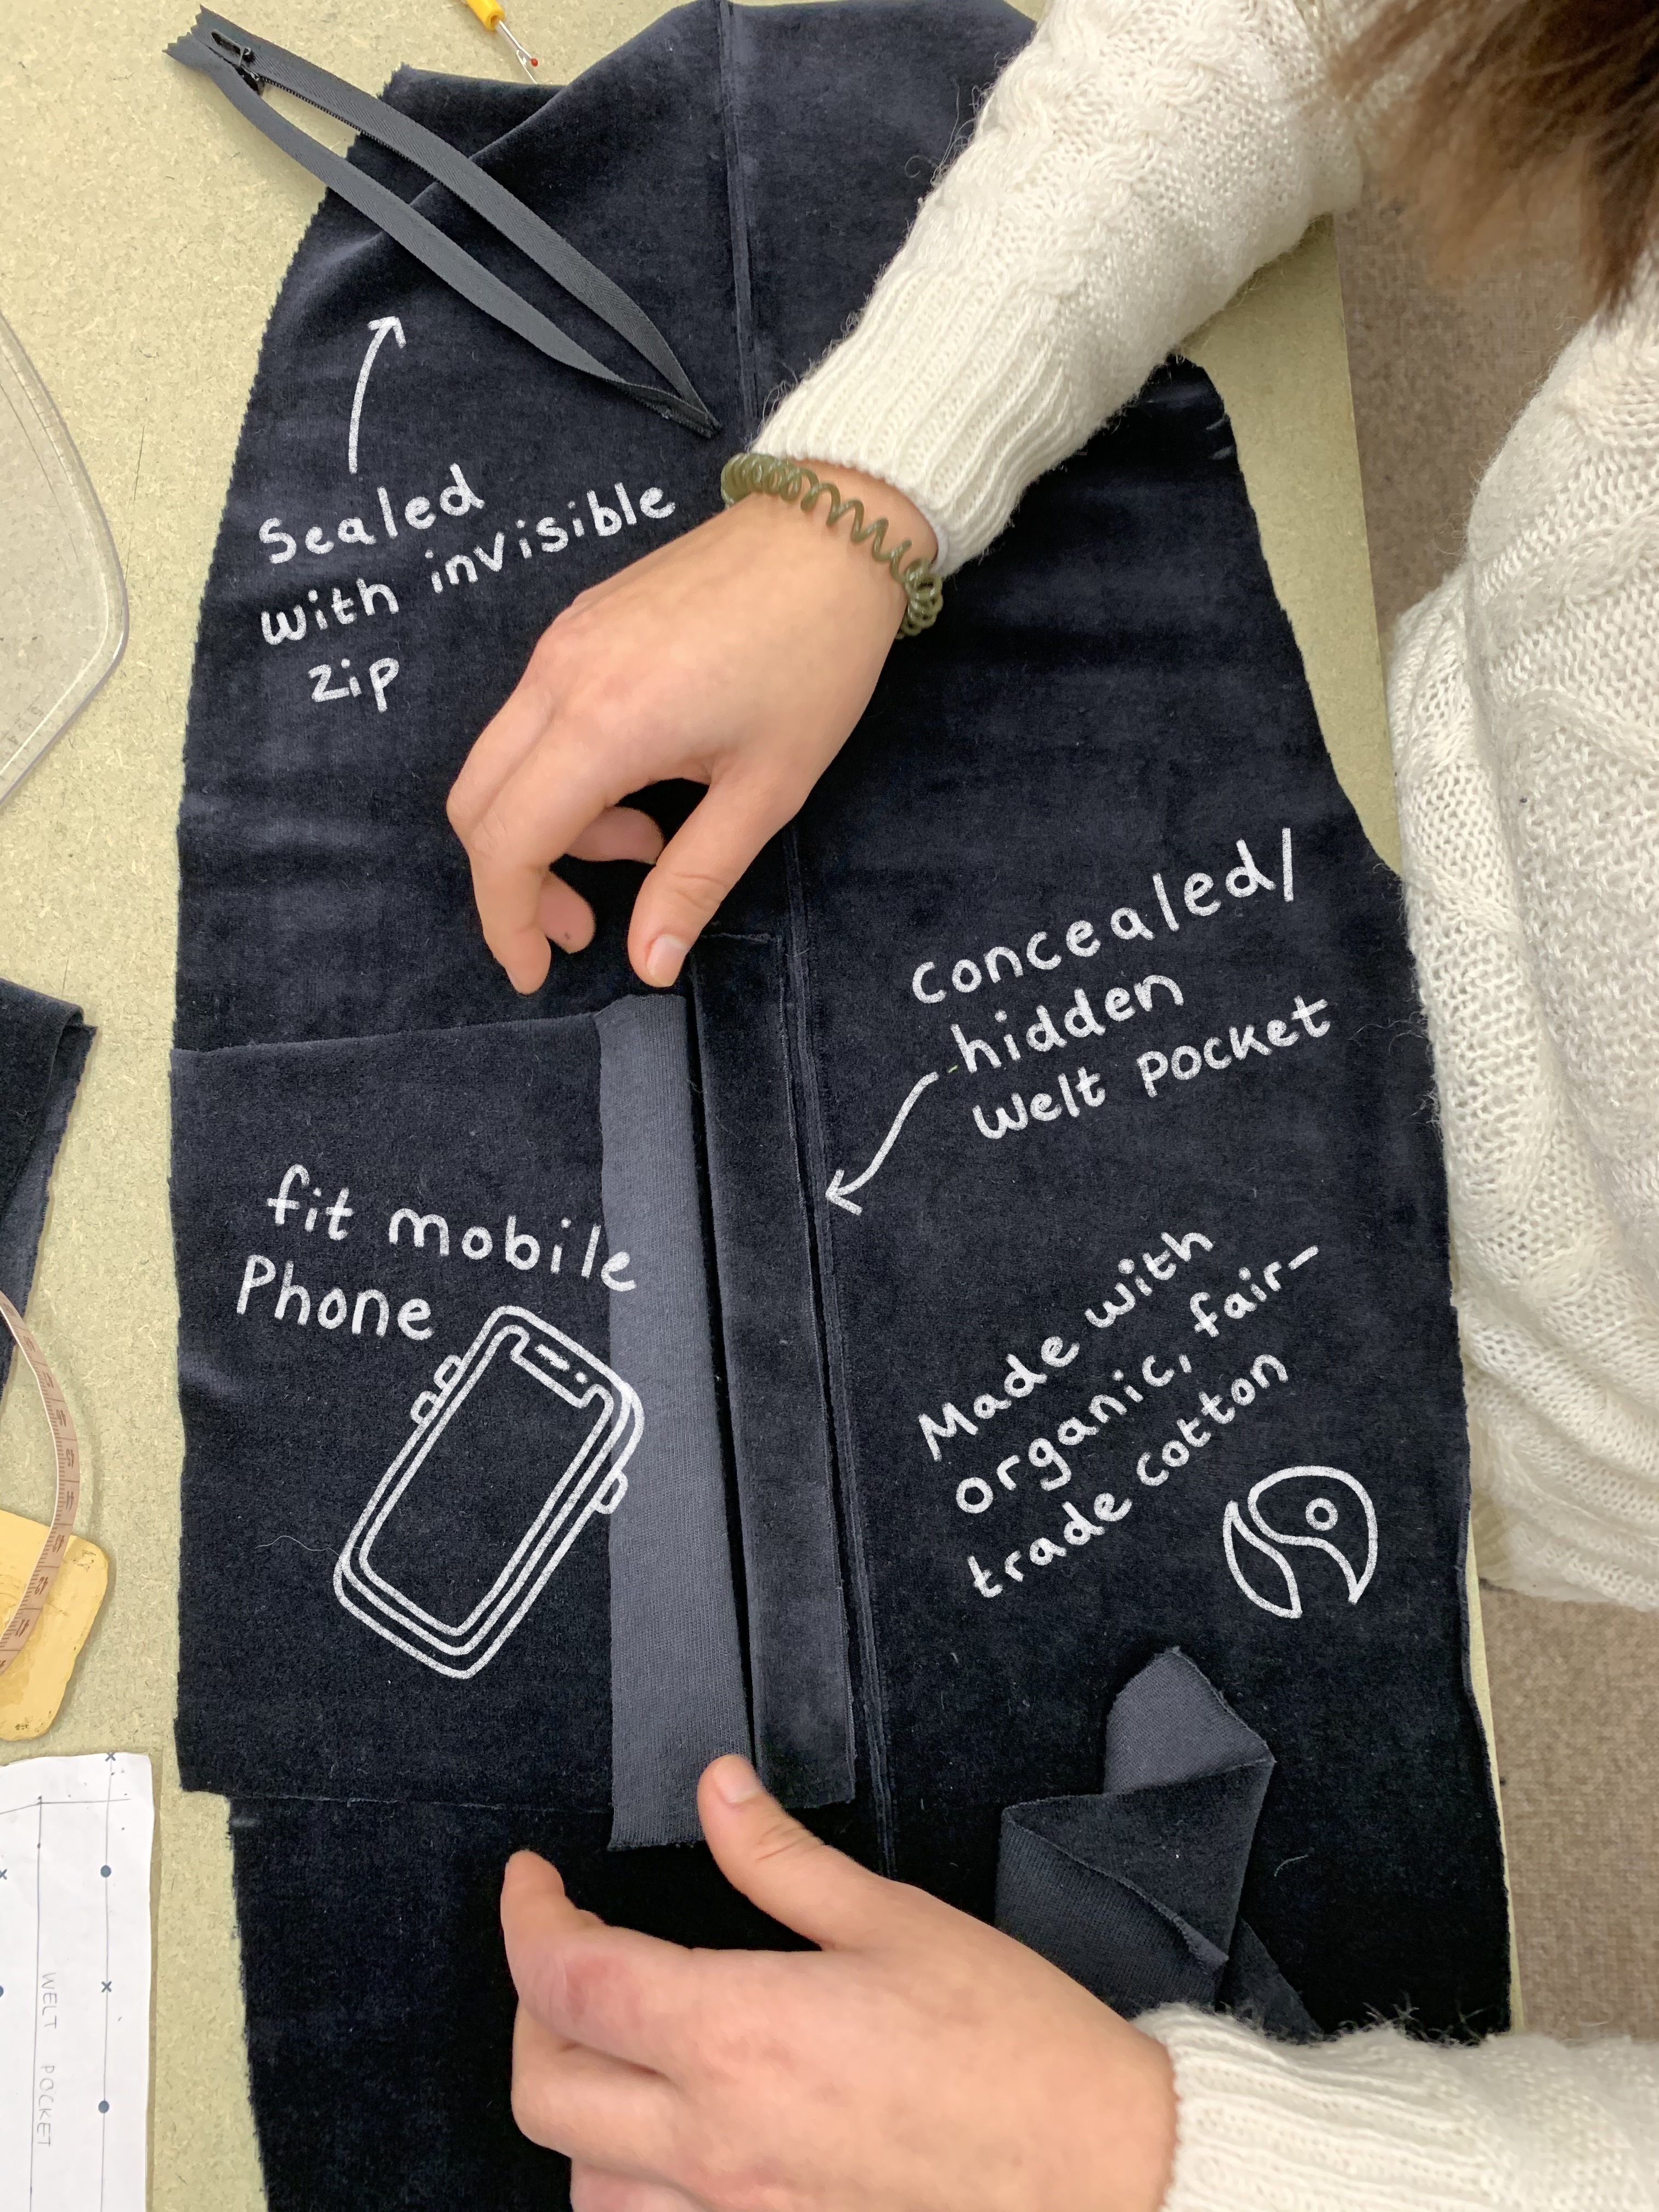 Sealed
with invisible
zip
Concealed/
hidden
welt pocket
fit mobile
Phone
Made with
organic, fair-
trade cotton
WELT POCKET